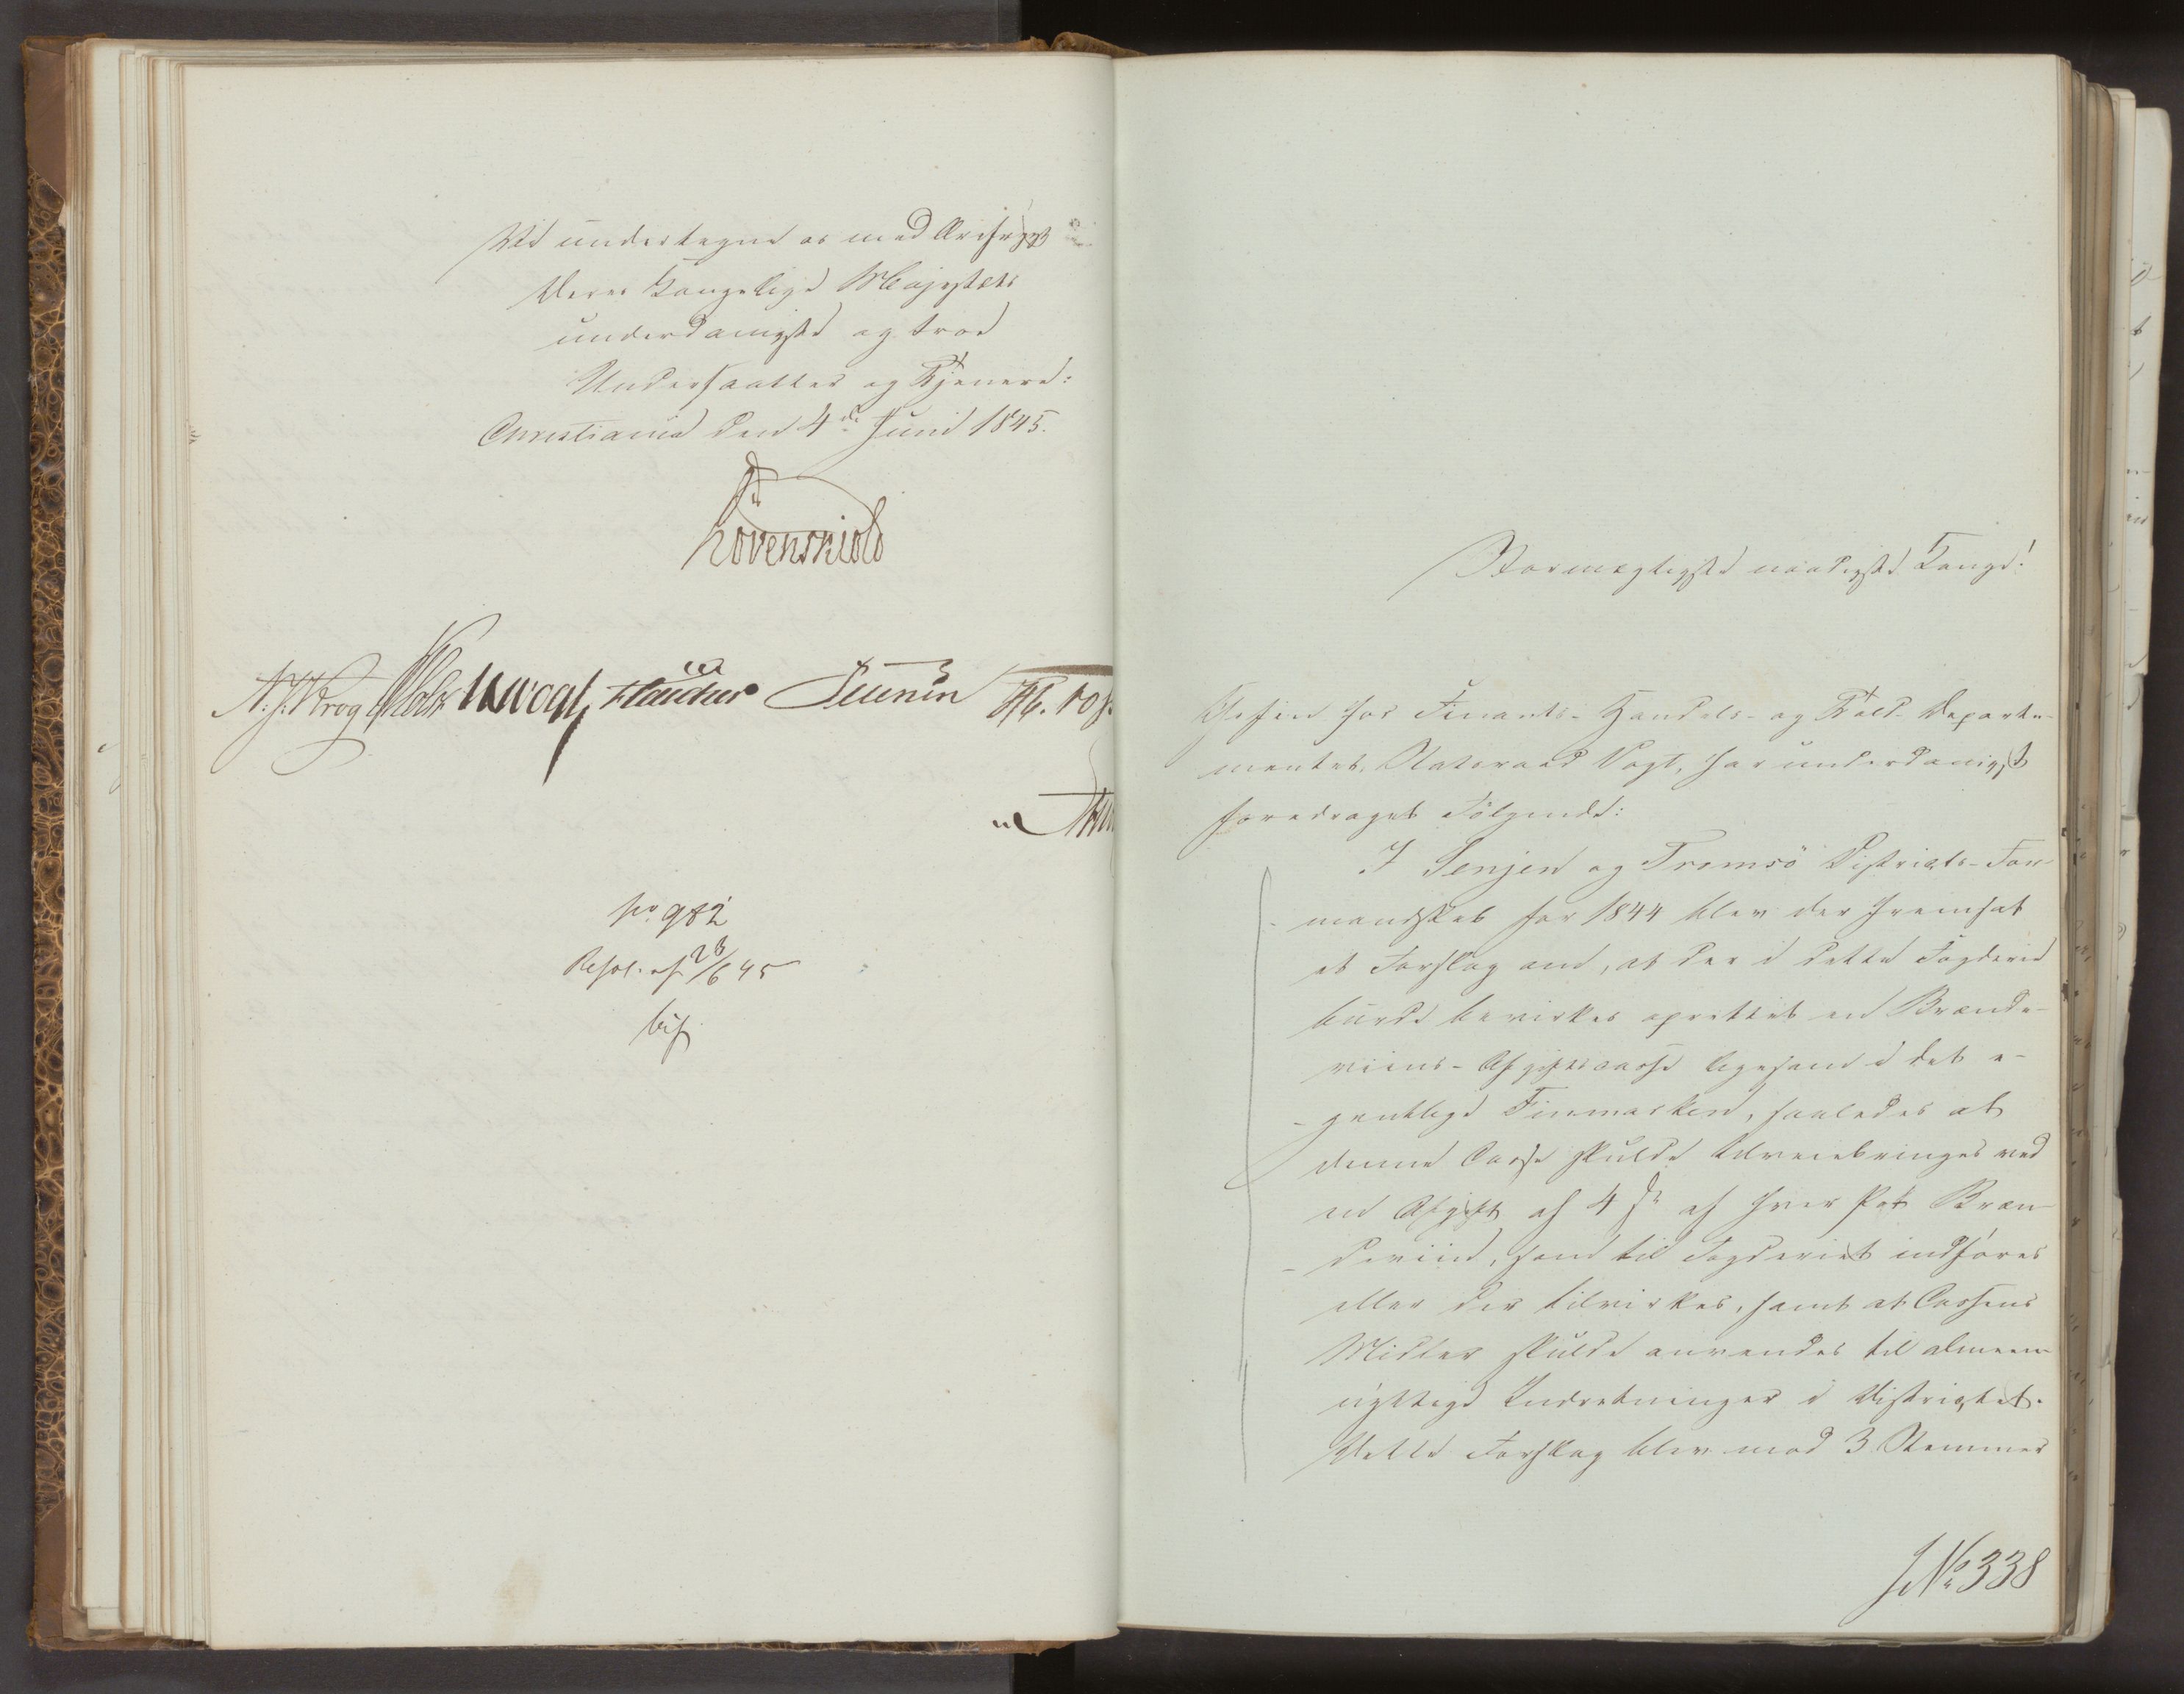 Vi undertegne os med Ærefrygt
Deres Kongelige Majestæts
underdanigste og troe
Undersaatter og Tjenere:
Christiania den 4de Juni 1845.
Lövenskiold
N: J: Krog Holst JHVogt Flaucher Sibbern
no 982
Resol. af 28/6 45
Stormægtigste naadigste Konge!
Chefen for Finants- Handels- og Told- Departe-
mentet, Statsraad Vogt, har underdanigst
foredraget Følgende:
I Senjen og Tromsö Districts-For-
mandskab for 1844 blev der fremsat
et Forslag om, at der i dette Fogderie
burde bevirkes oprettet en Brænde-
viins-Afgiftscasse ligesom i det e-
gentlige Finmarken, saaledes at
denne Casse skulde tilveiebringes ved
en Afgift af 4 s af hver Pot Bræn-
deviin, som til Fogderiet indføres
eller der tilvirkes, samt at Cassens
Midler skulde anvendes til almeen-
nyttige Indretninger i Districtet.
Dette Forslag blev mod 3 Stemmer
JNo 338